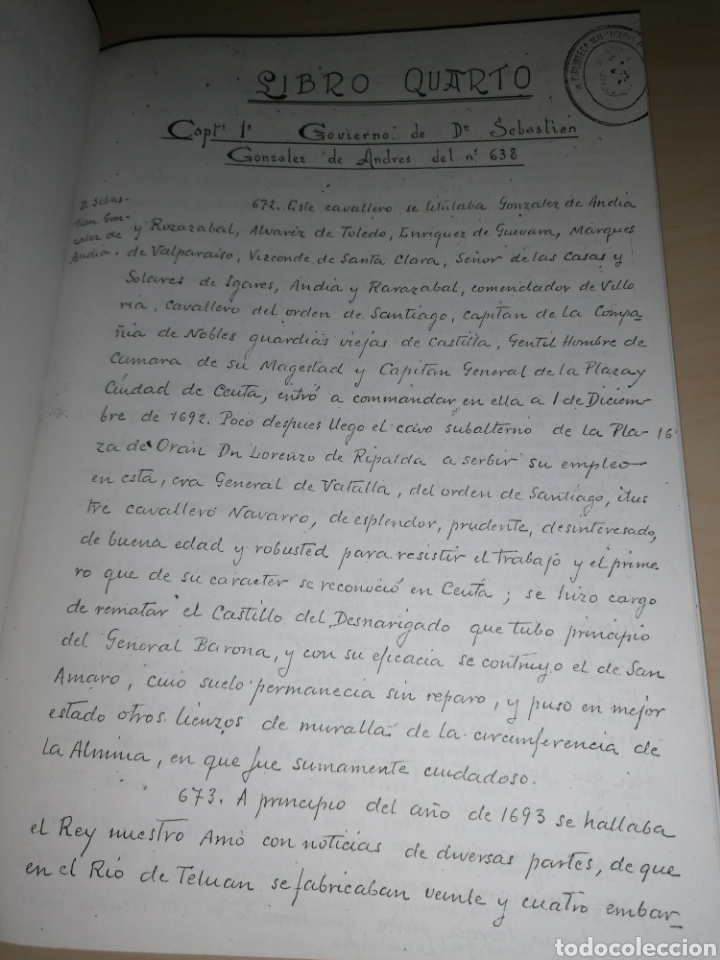 LIBRO QUARTO
Capt.º 1º Govierno de Dn Sebastian
Gonzalez de Andres del nº 638
D. Sebas-
tian Gon-
zalez de
Andia.
672. Este cavallero se titulaba Gonzalez de Andia
y Rozarabal, Alvarez de Toledo, Enriquez de Guevara, Marques
de Valparaiso, Vizconde de Santa Clara, Señor de las Casas y
Solares de Igares, Andia y Rarazabal, comendador de Villo
ria, Cavallero del orden de Santiago, capitan de la Compa-
ñia de Nobles guardias viejas de Castilla, Gentil Hombre de
Camara de su Magestad y Capitan General de la Plaza y
Ciudad de Ceuta, entró a commandar en ella a 1 de Diciem-
bre de 1692. Poco despues llego el cavo subalterno de la Pla-
za de Orán Dn Lorenzo de Ripalda a serbir su empleo
en esta, era General de Vatalla, del orden de Santiago, ilus
tre cavallero Navarro, de esplendor, prudente, desinteresado,
de buena edad y robusted para resistir el trabajo y el prime
ro que de su caracter se reconoció en Ceuta; se hizo cargo
de rematar el Castillo del Desnarigado que tubo principio
del General Barona, y con su eficacia se contruyo el de San
Amaro, cuio suelo permanecia sin reparo, y puso en mejor
estado otros lienzos de muralla de la circunferencia de
la Almina, en que fue sumamente cuidadoso.
673. A principio del año de 1693 se hallaba
el Rey nuestro Amo con noticias de diversas partes, de que
en el Rio de Teluan se fabricaban veinte y cuatro embar-
todocoleccion